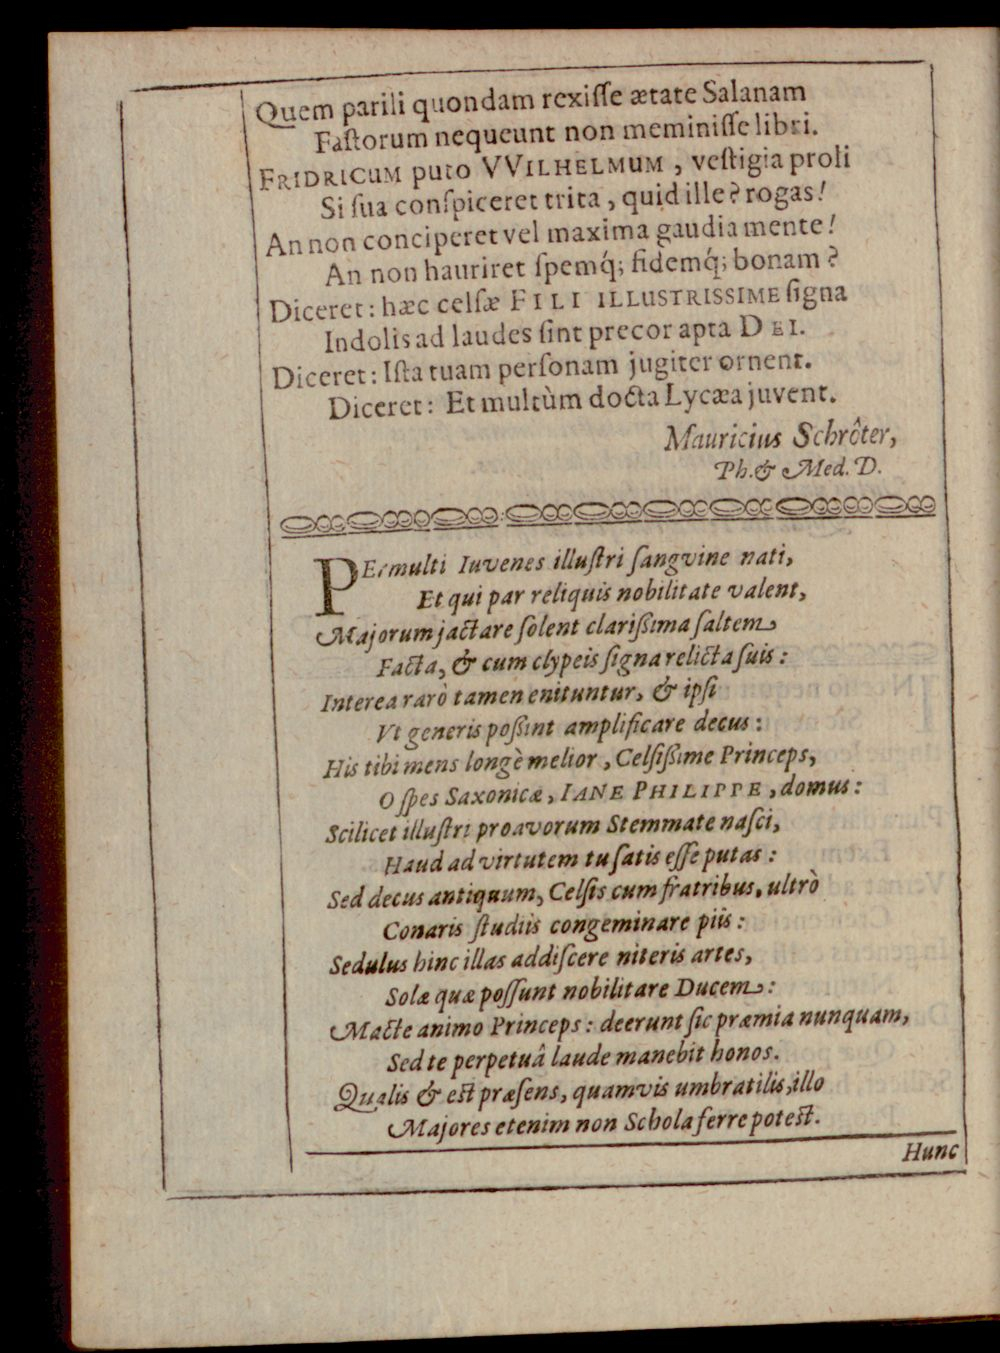 Quem parili quondam rexiſſe ætate Salanam
Faſtorum nequeunt non meminiſſe libri.
FRIDRICUM puto VVILHELMUM, veſtigia proli
Si ſua conſpiceret trita, quid ille? rogas!
An non conciperet vel maxima gaudia mente!
An non hauriret ſpemq́; fidemq́; bonam?
Diceret: hæc celſæ FILI ILLUSTRISSIME ſigna
Indolis ad laudes ſint precor apta DEI.
Diceret: Iſta tuam perſonam jugiter ornent.
Diceret: Et multùm docta Lycæa juvent.
Mauricius Schrôter,
Ph. & Med. D.
PErmulti Iuvenes illuſtri ſangvine nati,
Et qui par reliquis nobilitate valent,
Majorum jactare ſolent clarißima ſaltem
Facta, & cum clypeis ſigna relicta ſuis:
Interea rarò tamen enituntur, & ipſi
Vt generis poßint amplificare decus:
His tibi mens longè melior, Celſißime Princeps,
O ſpes Saxonicæ, IANE PHILIPPE, domus:
Scilicet illuſtri proavorum Stemmate naſci,
Haud ad virtutem tu ſatis eſſe putas:
Sed decus antiquum, Celſis cum fratribus, ultrò
Conaris ſtudiis congeminare piis:
Sedulus hinc illas addiſcere niteris artes,
Solæ quæ poſſunt nobilitare Ducem:
Macte animo Princeps: deerunt ſic præmia nunquam,
Sed te perpetuâ laude manebit honos.
Qualis & eſt præſens, quamvis umbratilis, illo
Majores etenim non Schola ferre poteſt.
Hunc